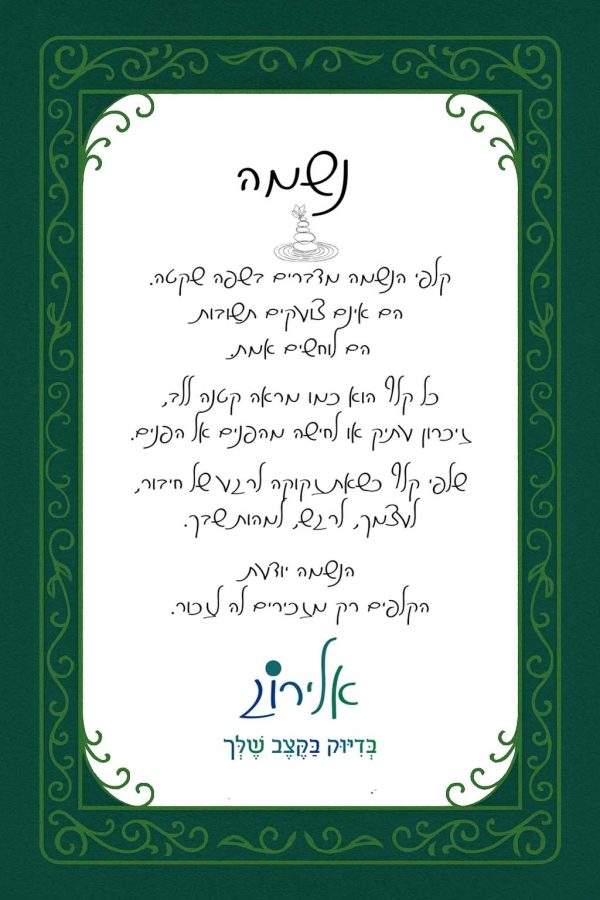 נשמה
קלפי הנשמה מדברים בשפה שקטה.
הם אינם צועקים תשובות
הם לוחשים אמת.
כל קלף הוא כמו מראה קטנה ללב,
זיכרון עתיק או לחישה מהפנים אל הפנים.
שלפי קלף כשאת זקוקה לרגע של חיבור,
לעצמך, לרגש, למהות שבך.
הנשמה יודעת
הקלפים רק מזכירים לה לזכור.
אלירון
בְּדִיּוּק בַּקֶּצֶב שֶׁלָּךְ